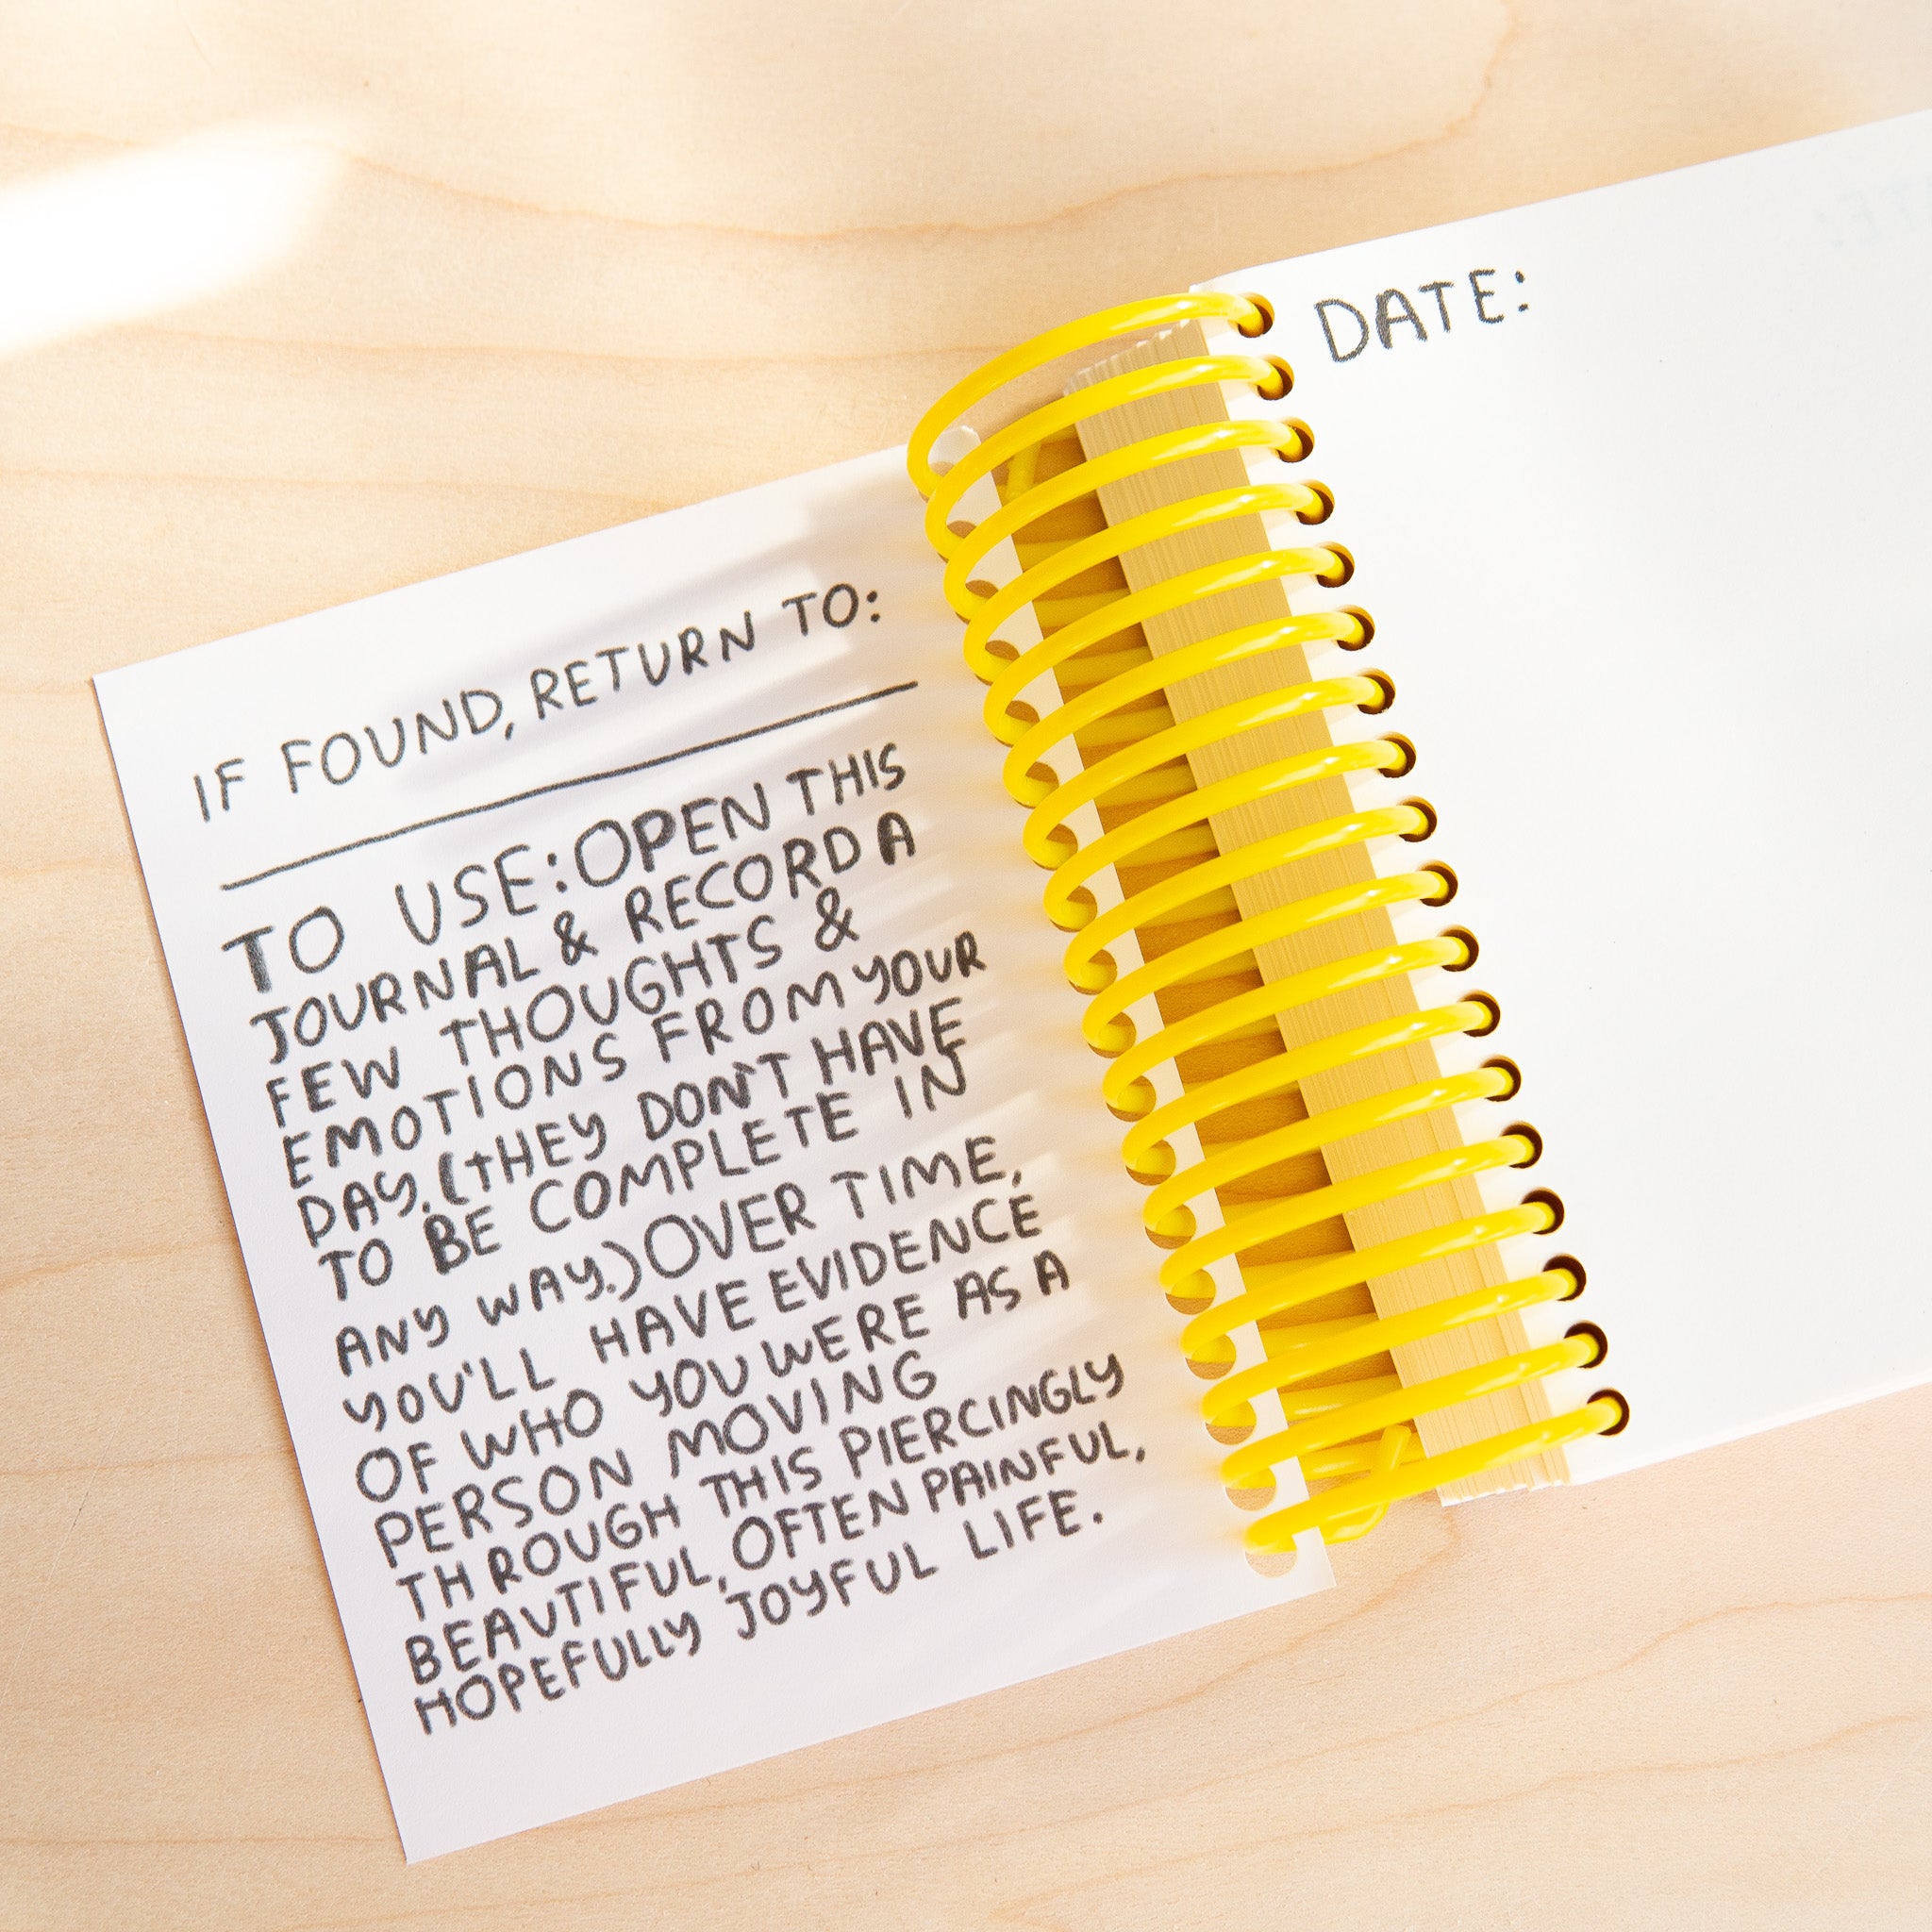 IF FOUND, RETURN TO:
TO USE: OPEN THIS
JOURNAL & RECORD A
FEW THOUGHTS &
EMOTIONS FROM YOUR
DAY. (THEY DON'T HAVE
TO BE COMPLETE IN
ANY WAY.) OVER TIME,
YOU'LL HAVE EVIDENCE
OF WHO YOU WERE AS A
PERSON MOVING
THROUGH THIS PIERCINGLY
BEAUTIFUL, OFTEN PAINFUL,
HOPEFULLY JOYFUL LIFE.
DATE: